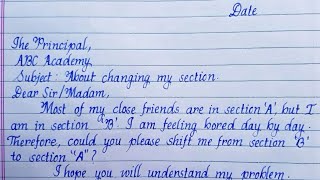 Date
The Principal,
ABC Academy,
Subject: About changing my section.
Dear Sir/Madam,
Most of my close friends are in section 'A', but I
am in section "B". I am feeling bored day by day.
Therefore, could you please shift me from section "B"
to section "A"?
I hope you will understand my problem.